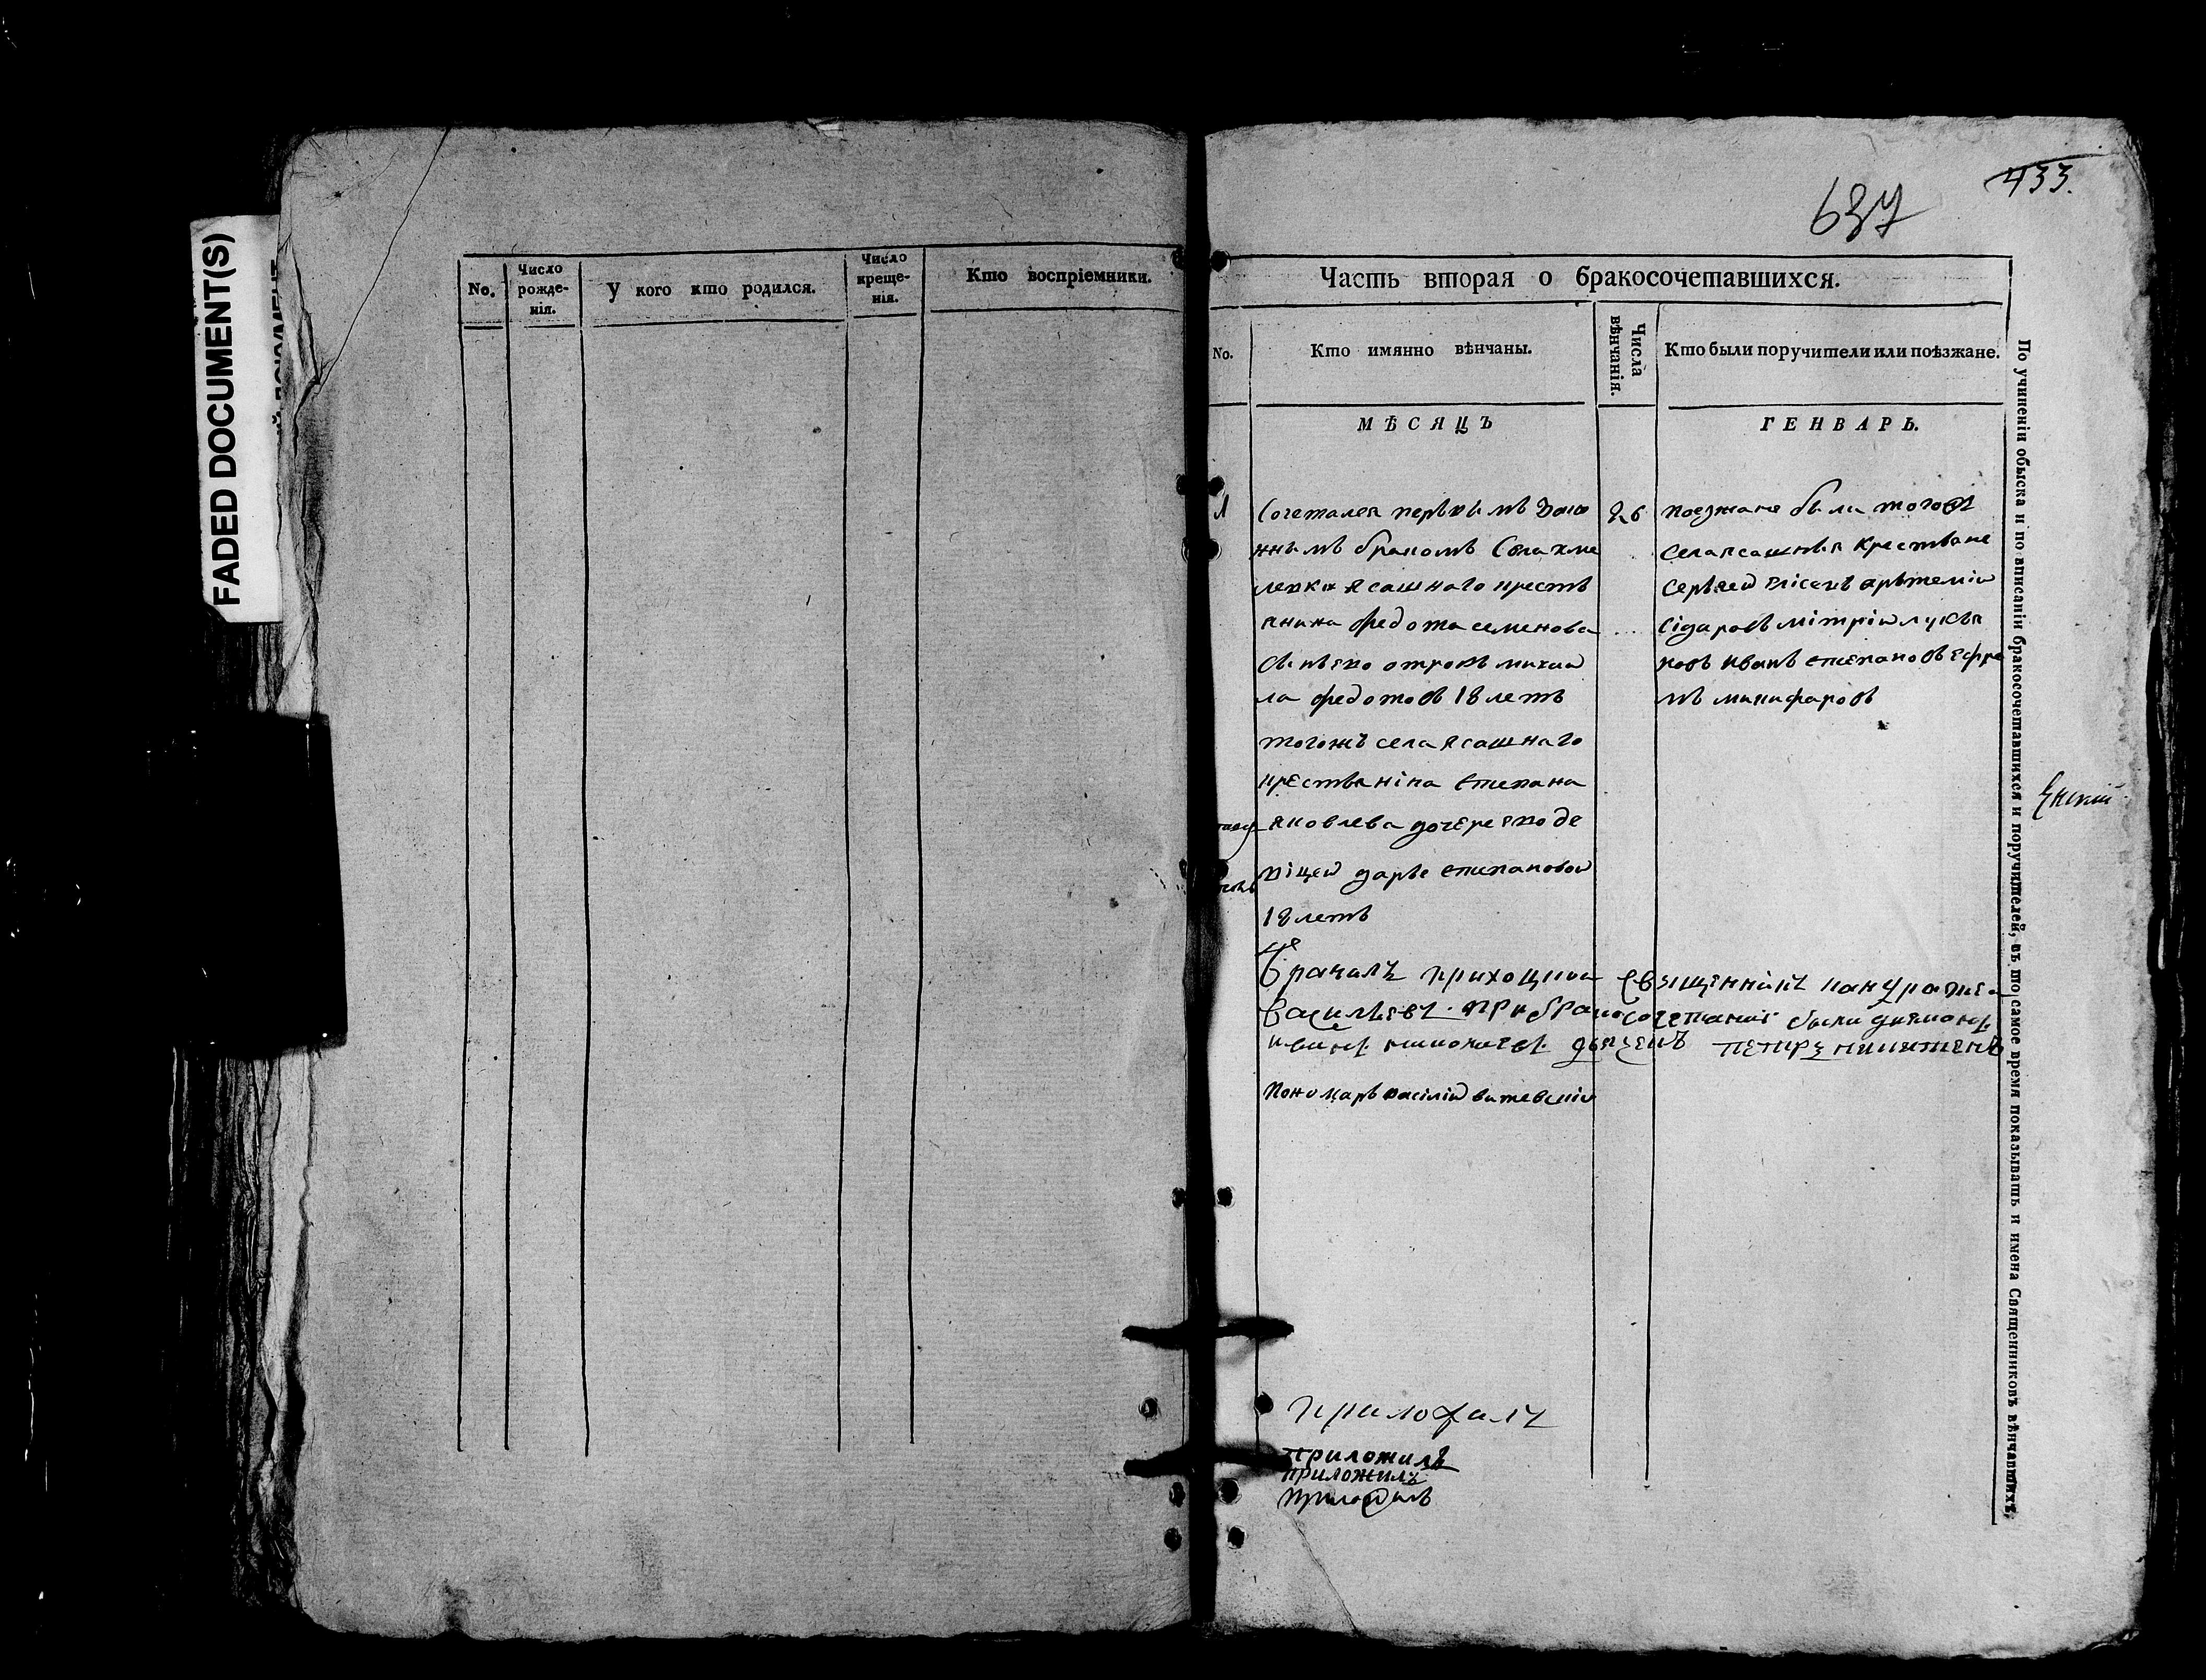 FADED DOCUMENT(S)
No.
Число рожде-нія.
У кого кто родился.
Число креще-нія.
Кто воспріемники.
433.
637
Часть вторая о бракосочетавшихся.
No.
Кто имянно вѣнчаны.
Числа вѣнчанія.
Кто были поручители или поѣзжане.
МѢСЯЦЪ
ГЕНВАРЬ.
1
Сочетался первымъ зако
ннымъ бракомъ
ясашнаго кресть
янина федота семенова
сынъ отрокъ михаи
ла федотовъ 18 летъ
тогожъ села ясашнаго
крестьянина степана
яковлева дочерею де
віцей дарье степановой
18 летъ
26
поезжане были тогожъ
села ясашныя крестьяне
сергей елісеевъ артемій
сідаровъ мітрій лукья
новъ иванъ степановъ ефре
мъ никифаровъ
Браналъ приходции священникъ
Васильевъ при бракосочетаніи были
дьячекъ петръ никитенъ
Пономаръ васілій витевский
приложилъ
приложилъ
приложилъ
приложилъ
По учиненіи обыска и по вписаніи бракосочетавшихся и поручителей, въ то самое время показывать и имена Священниковъ вѣнчавшихъ,